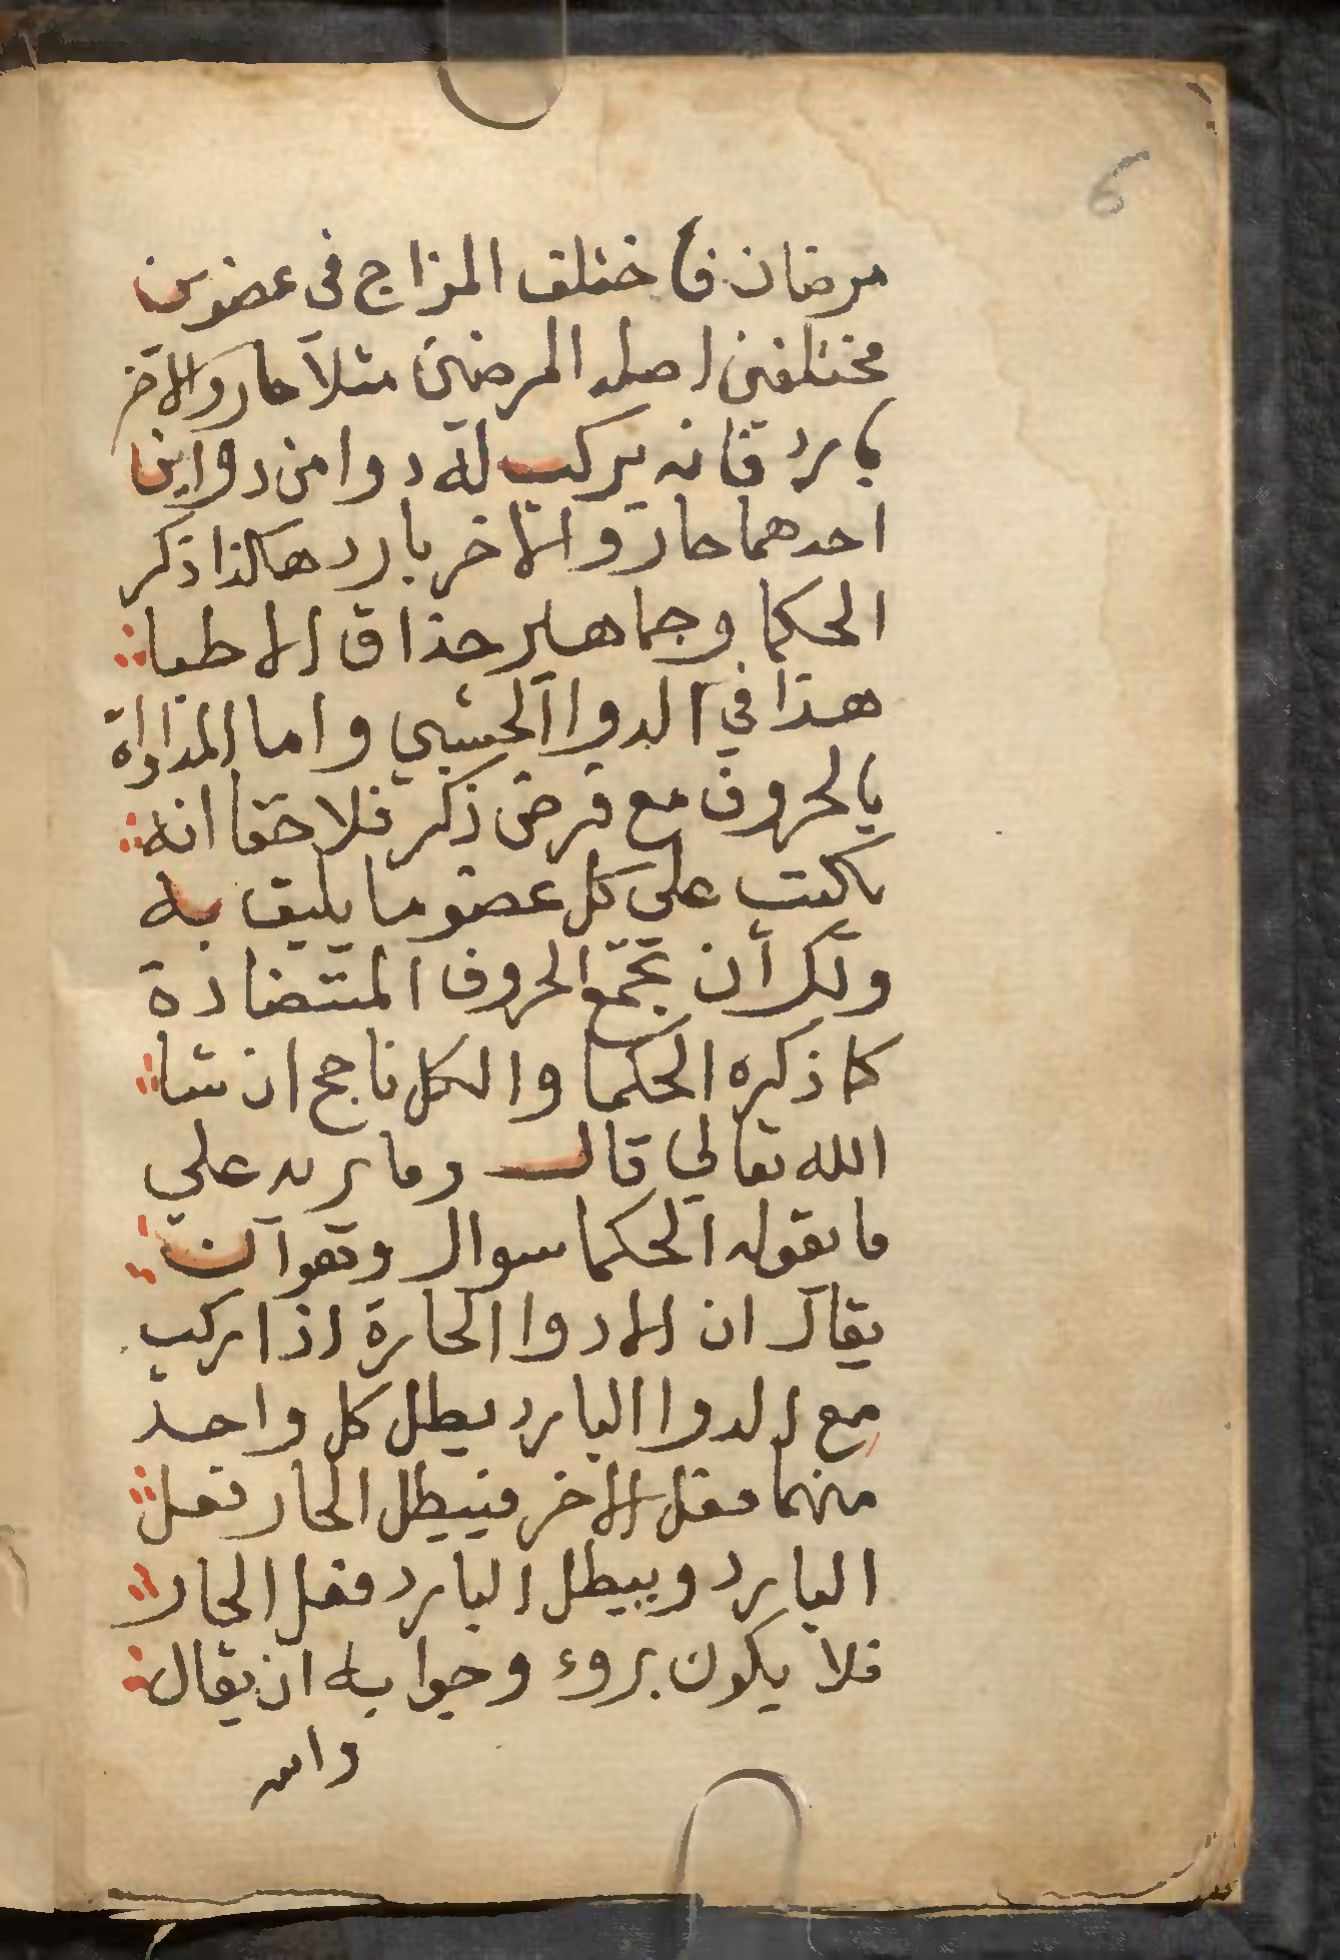 6
مرضان فاختلف المزاج فى عضوين
مختلفين اصل المرضين مثلا حار والاخر
بارد فانه يركب له دوا من دواين
احدهما حار والاخر بارد هاكذا ذكر
الحكما وجماهير حذاق الاطبا
هذا في الدوا الحشيشي واما المداواة
بالحروف مع فرض ذكر فلا خفا انه
يكتب على كل عضو ما يليق به
ولك أن تجمع الحروف المتضادة
كما ذكره الحكما والكل ناجح ان شا
الله تعالي قال وما يريد علي
ما يقوله الحكما سوال وهو ان
يقال ان الادوا الحارة اذا ركب
مع الدوا البارد يبطل كل واحد
منهما فعل الاخر فيبطل الحار فعل
البارد ويبطل البارد فعل الحار
فلا يكون بروء وجوابه ان يقال